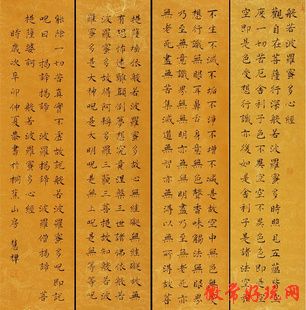 般若波羅蜜多心經
觀自在菩薩行深般若波羅蜜多時照見五蘊皆空
度一切苦厄舍利子色不異空空不異色色即是空
空即是色受想行識亦復如是舍利子是諸法空相
不生不滅不垢不淨不增不減是故空中無色無受
想行識無眼耳鼻舌身意無色聲香味觸法無眼界
乃至無意識界無無明亦無無明盡乃至無老死亦
無老死盡無苦集滅道無智亦無得以無所得故菩
提薩埵依般若波羅蜜多故心無罣礙無罣礙故無
有恐怖遠離顛倒夢想究竟涅槃三世諸佛依般若
波羅蜜多故得阿耨多羅三藐三菩提故知般若波
羅蜜多是大神呪是大明呪是無上呪是無等等呪
能除一切苦真實不虛故說般若波羅蜜多呪即說
呪曰 揭諦揭諦 波羅揭諦 波羅僧揭諦 菩
提薩婆訶 般若波羅蜜多心經
時歲次辛卯仲夏恭書於山房